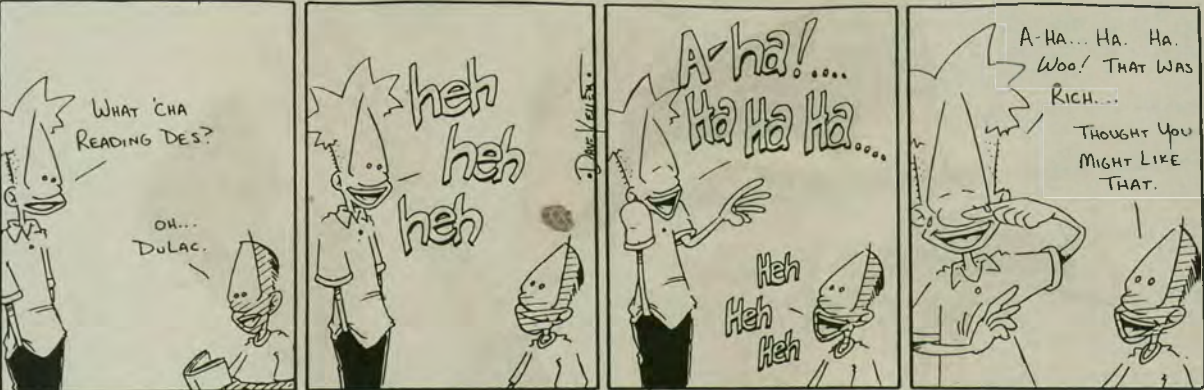 WHAT 'CHA
READING DES?
OH...
DULAC.
heh
heh
heh
A-ha!....
Ha Ha Ha....
Heh
Heh
Heh
A-HA... HA. HA.
WOO! THAT WAS
RICH...
THOUGHT YOU
MIGHT LIKE
THAT.